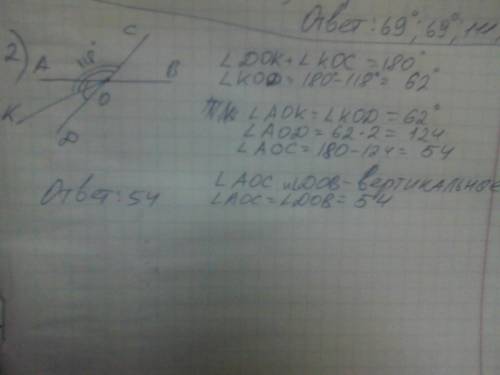 Ответ: 69°; 69°; 111
2)
C
118°
A
B
O
K
D
∠DOK + ∠KOC = 180°
∠KOD = 180-118° = 62°
∠AOK = ∠KOD = 62°
∠AOD = 62·2 = 124
∠AOC = 180-124 = 54
∠AOC и ∠DOB - вертикальные
∠AOC = ∠DOB = 54
Ответ: 54